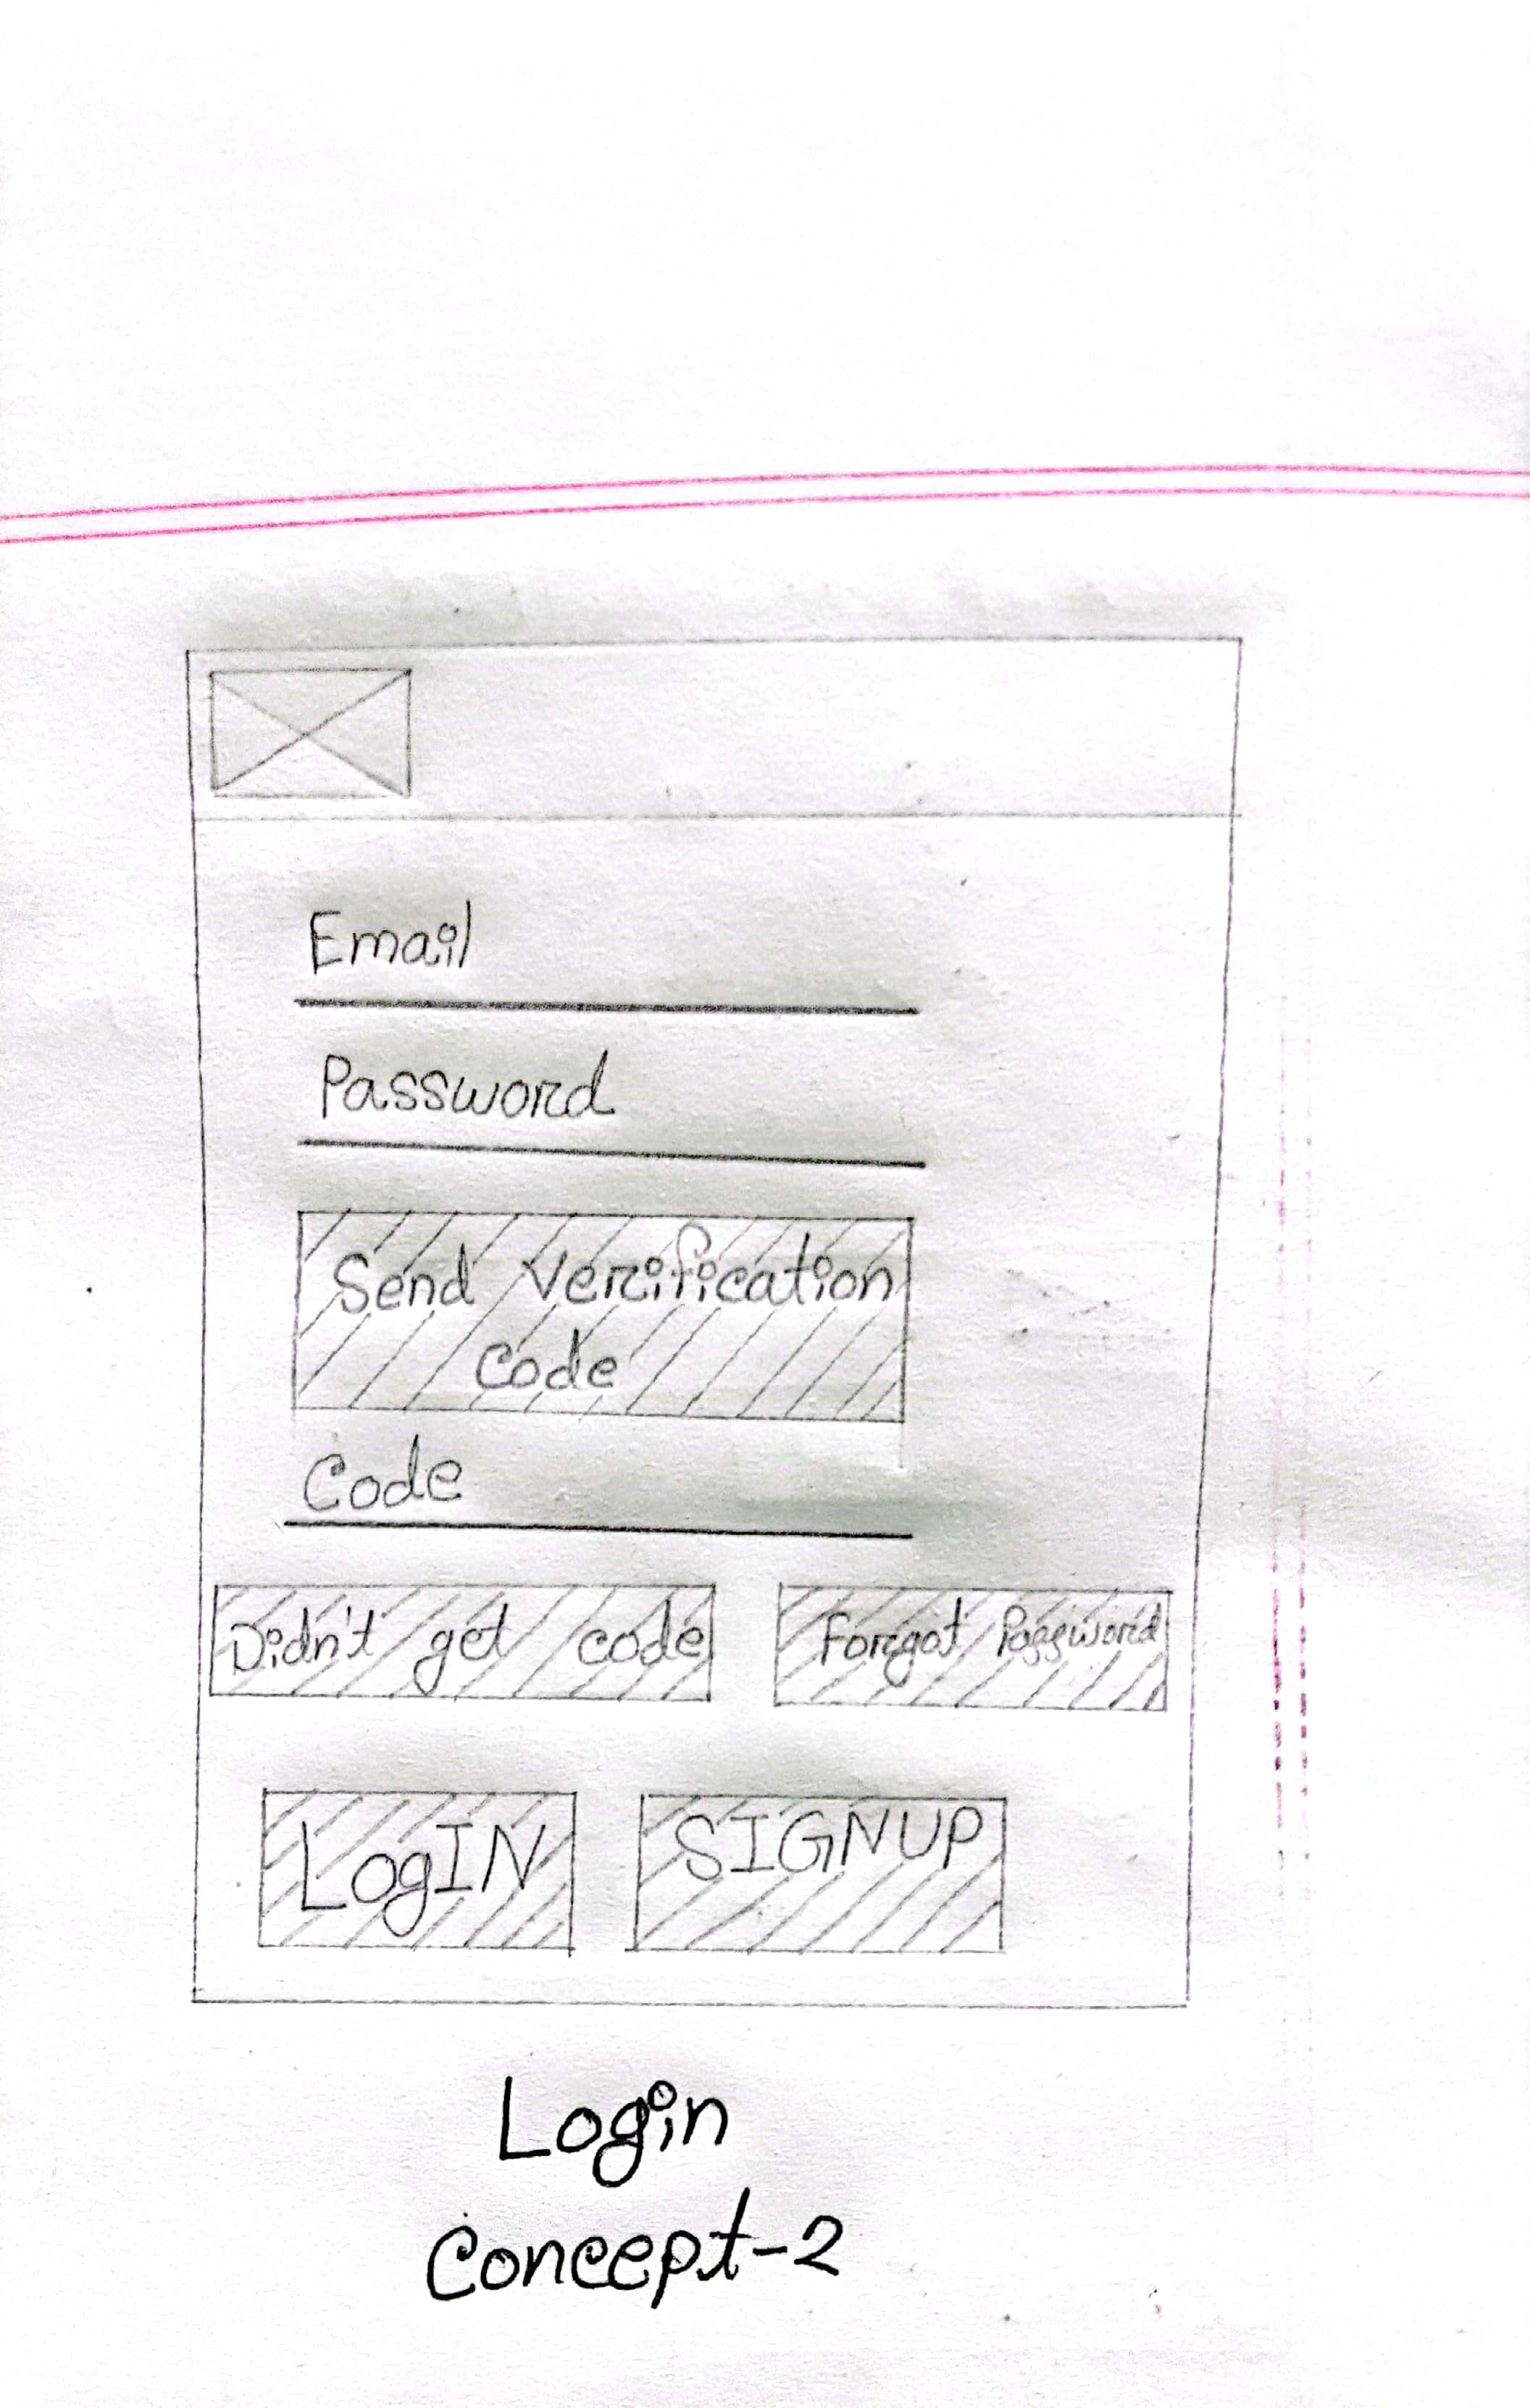 Email
Password
Send verification
code
Code
Didn't get code
Forgot Password
LogIN
SIGNUP
Login
Concept-2